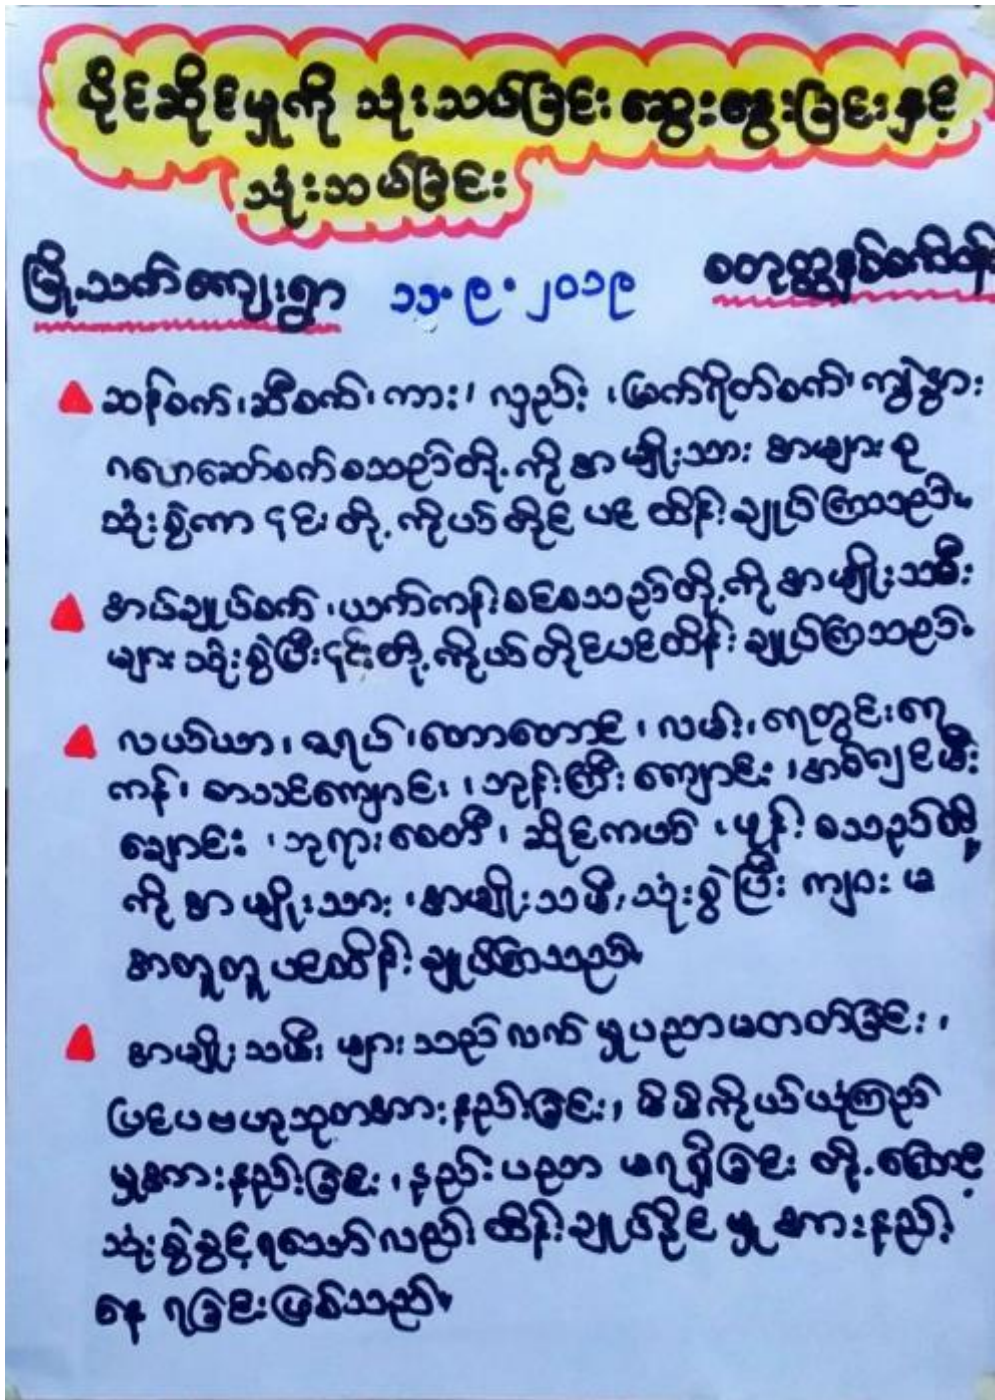 ပိုင်ဆိုင်မှုကို သုံးသပ်ခြင်း ဆွေးနွေးခြင်းနှင့်
သုံးသပ်ခြင်း
မြို့သက်ကျေးရွာ ၁၁.၉.၂၀၁၉ စတုတ္ထနှစ်စက်ဝန်း
ဆန်စက်၊ ဆီစက်၊ ကား၊ လှည်း၊ မြက်ရိတ်စက်၊ ကျွဲနွား
ဂလောဆော်စက် စသည်တို့ကို အမျိုးသား အများစု
သုံးစွဲကာ ၎င်းတို့ ကိုယ်တိုင် ပင် ထိန်းချုပ်ကြသည်။
အပ်ချုပ်စက်၊ ယက်ကန်းစင်စသည်တို့ကို အမျိုးသမီး
များ သုံးစွဲပြီး ၎င်းတို့ကိုယ်တိုင်ပင်ထိန်းချုပ်ကြသည်။
လယ်ယာ၊ ရေယာဉ်၊ တောတောင်၊ လမ်း၊ ရေတွင်းရေ
ကန်၊ စာသင်ကျောင်း၊ ဘုန်းကြီးကျောင်း၊ အင်ဂျင်မီး
ချောင်း၊ ဘုရားစေတီ၊ ဆိုင်ကယ်၊ ဖုန်း စသည်တို့
ကို အမျိုးသား၊ အမျိုးသမီး သုံးစွဲပြီး ကျား မ
အတူတူ ပင်ထိန်းချုပ်ကြသည်။
အမျိုးသမီး များသည် လက်မှုပညာမတတ်ခြင်း၊
ပြင်ပဗဟုသုတအားနည်းခြင်း၊ မိမိကိုယ်ယုံကြည်
မှုအားနည်းခြင်း၊ နည်းပညာ မရရှိခြင်း တို့ကြောင့်
သုံးစွဲခွင့်ရသော်လည်း ထိန်းချုပ်နိုင်မှု အားနည်း
နေ ရခြင်းဖြစ်သည်။